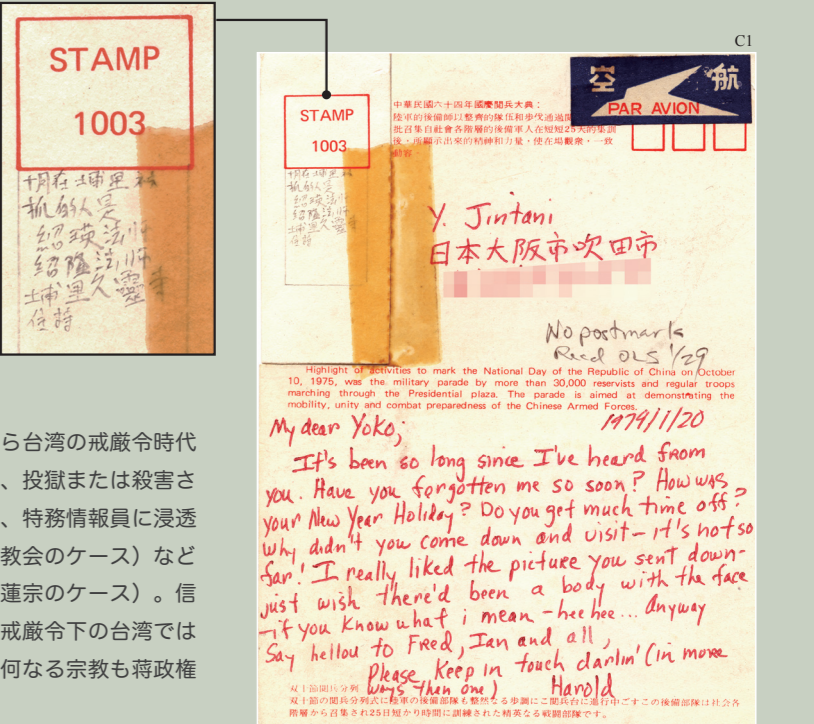 STAMP
1003
十月在埔里被
抓的人是
紹瑛法師
紹隆法師
埔里久靈寺
住持
C1
空 航
PAR AVION
STAMP
1003
中華民國六十四年國慶閱兵大典：
陸軍的後備師以整齊的隊伍和步伐通過閱
批召集自社會各階層的後備軍人在短短25天的集訓
後，所顯示出來的精神和力量，使在場觀衆，一致
十月在埔里被
抓的人是
紹瑛法師
紹隆法師
埔里久靈寺
住持
Y. Jintani
日本大阪市吹田市
No postmark
Recd OLS 1/29
Highlight of activities to mark the National Day of the Republic of China on October
10, 1975, was the military parade by more than 30,000 reservists and regular troops
marching through the Presidential plaza. The parade is aimed at demonstrating the
mobility, unity and combat preparedness of the Chinese Armed Forces.
1979/1/20
My dear Yoko;
It's been so long since I've heard from
you. Have you forgotten me so soon? How was
your New Year Holiday? Do you get much time off?
Why didn't you come down and visit – it's not so
far! I really liked the picture you sent down-
just wish there'd been a body with the face
– if you know what i mean – hee hee... Anyway
Say hellou to Fred, Ian and all,
Please Keep in touch darlin' (in more
ways than one) Harold
双十節閲兵分列
双十節の閲兵分列式に陸軍の後備部隊も整然なる歩調にこ閲兵台に進行中ごすこの後備部隊は社会各
階層から召集され25日短かり時間に訓練された精英なる戦闘部隊です。
ら台湾の戒厳令時代
、投獄または殺害さ
、特務情報員に浸透
教会のケース）など
蓮宗のケース）。信
戒厳令下の台湾では
何なる宗教も蒋政権